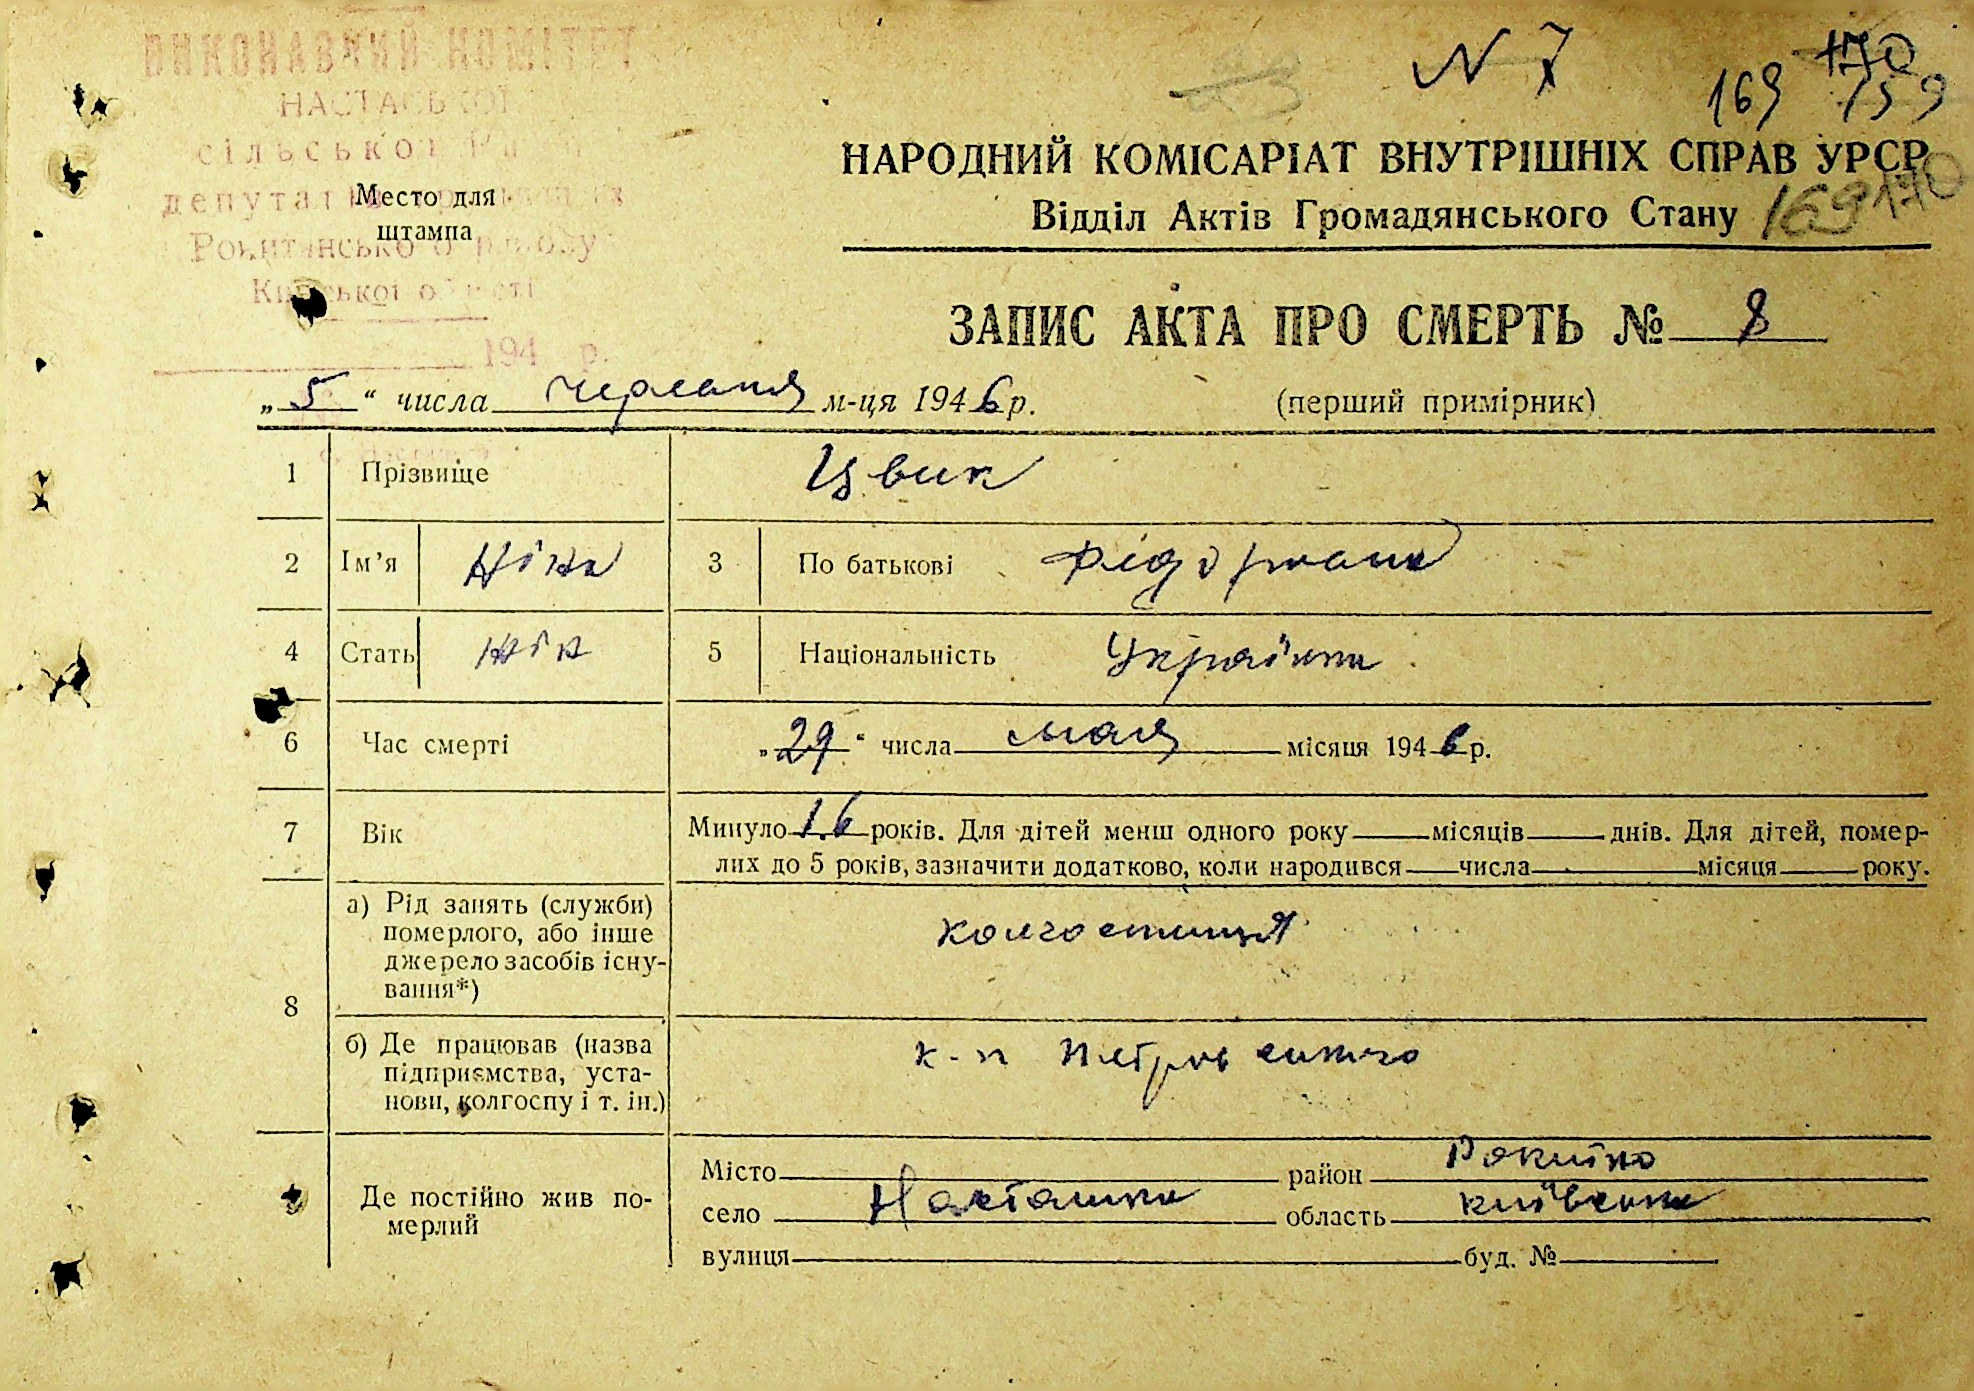 ВИКОНАВЧИЙ КОМІТЕТ
сільської
депутатів
Київської області
194 р.
Место для
штампа
N 7
169 170
159
НАРОДНИЙ КОМІСАРІАТ ВНУТРІШНІХ СПРАВ УРСР
Відділ Актів Громадянського Стану 169 170
ЗАПИС АКТА ПРО СМЕРТЬ № 8
„5“ числа червня м-ця 1946 р. (перший примірник)
1 Прізвище Цвик
2 Ім’я Ніна 3 По батькові
4 Стать жін 5 Національність Українка
6 Час смерті „29“ числа мая місяця 1946 р.
7 Вік Минуло 16 років. Для дітей менш одного року місяців днів. Для дітей, помер-
лих до 5 років, зазначити додатково, коли народився числа місяця року.
8 а) Рід занять (служби)
померлого, або інше
джерело засобів існу-
вання*)
колгоспниця
б) Де працював (назва
підприємства, уста-
нови, колгоспу і т. ін.)
к-п Петровського
9 Де постійно жив по-
мерлий
Місто район Рокитно
село Насташка область київська
вулиця буд. №